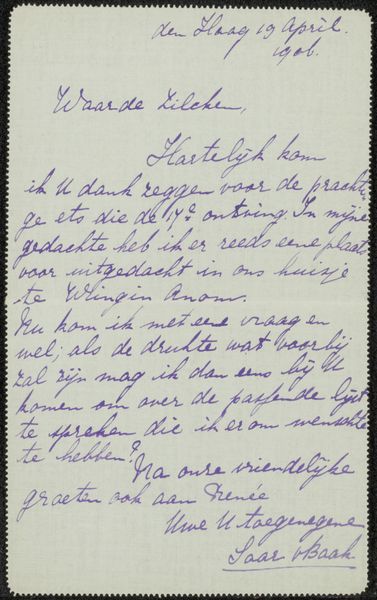 den Haag 19 April.
1906.
Waarde Zilcken,
Hartelijk kom
ik U dank zeggen voor de prachti-
ge ets die de 17e ontving. In mijne
gedachte heb ik er reeds eene plaats
voor uitgedacht in ons huisje
te Wingin Anom.
Nu kom ik met eene vraag en
wel; als de drukte wat voorbij
zal zijn mag ik dan eens bij U
komen om over de passende lijst
te spreken die ik er om wenschte
te hebben?
Na onze vriendelijke
groeten ook aan Renée
Uwe U toegenegene
Saar vBaak